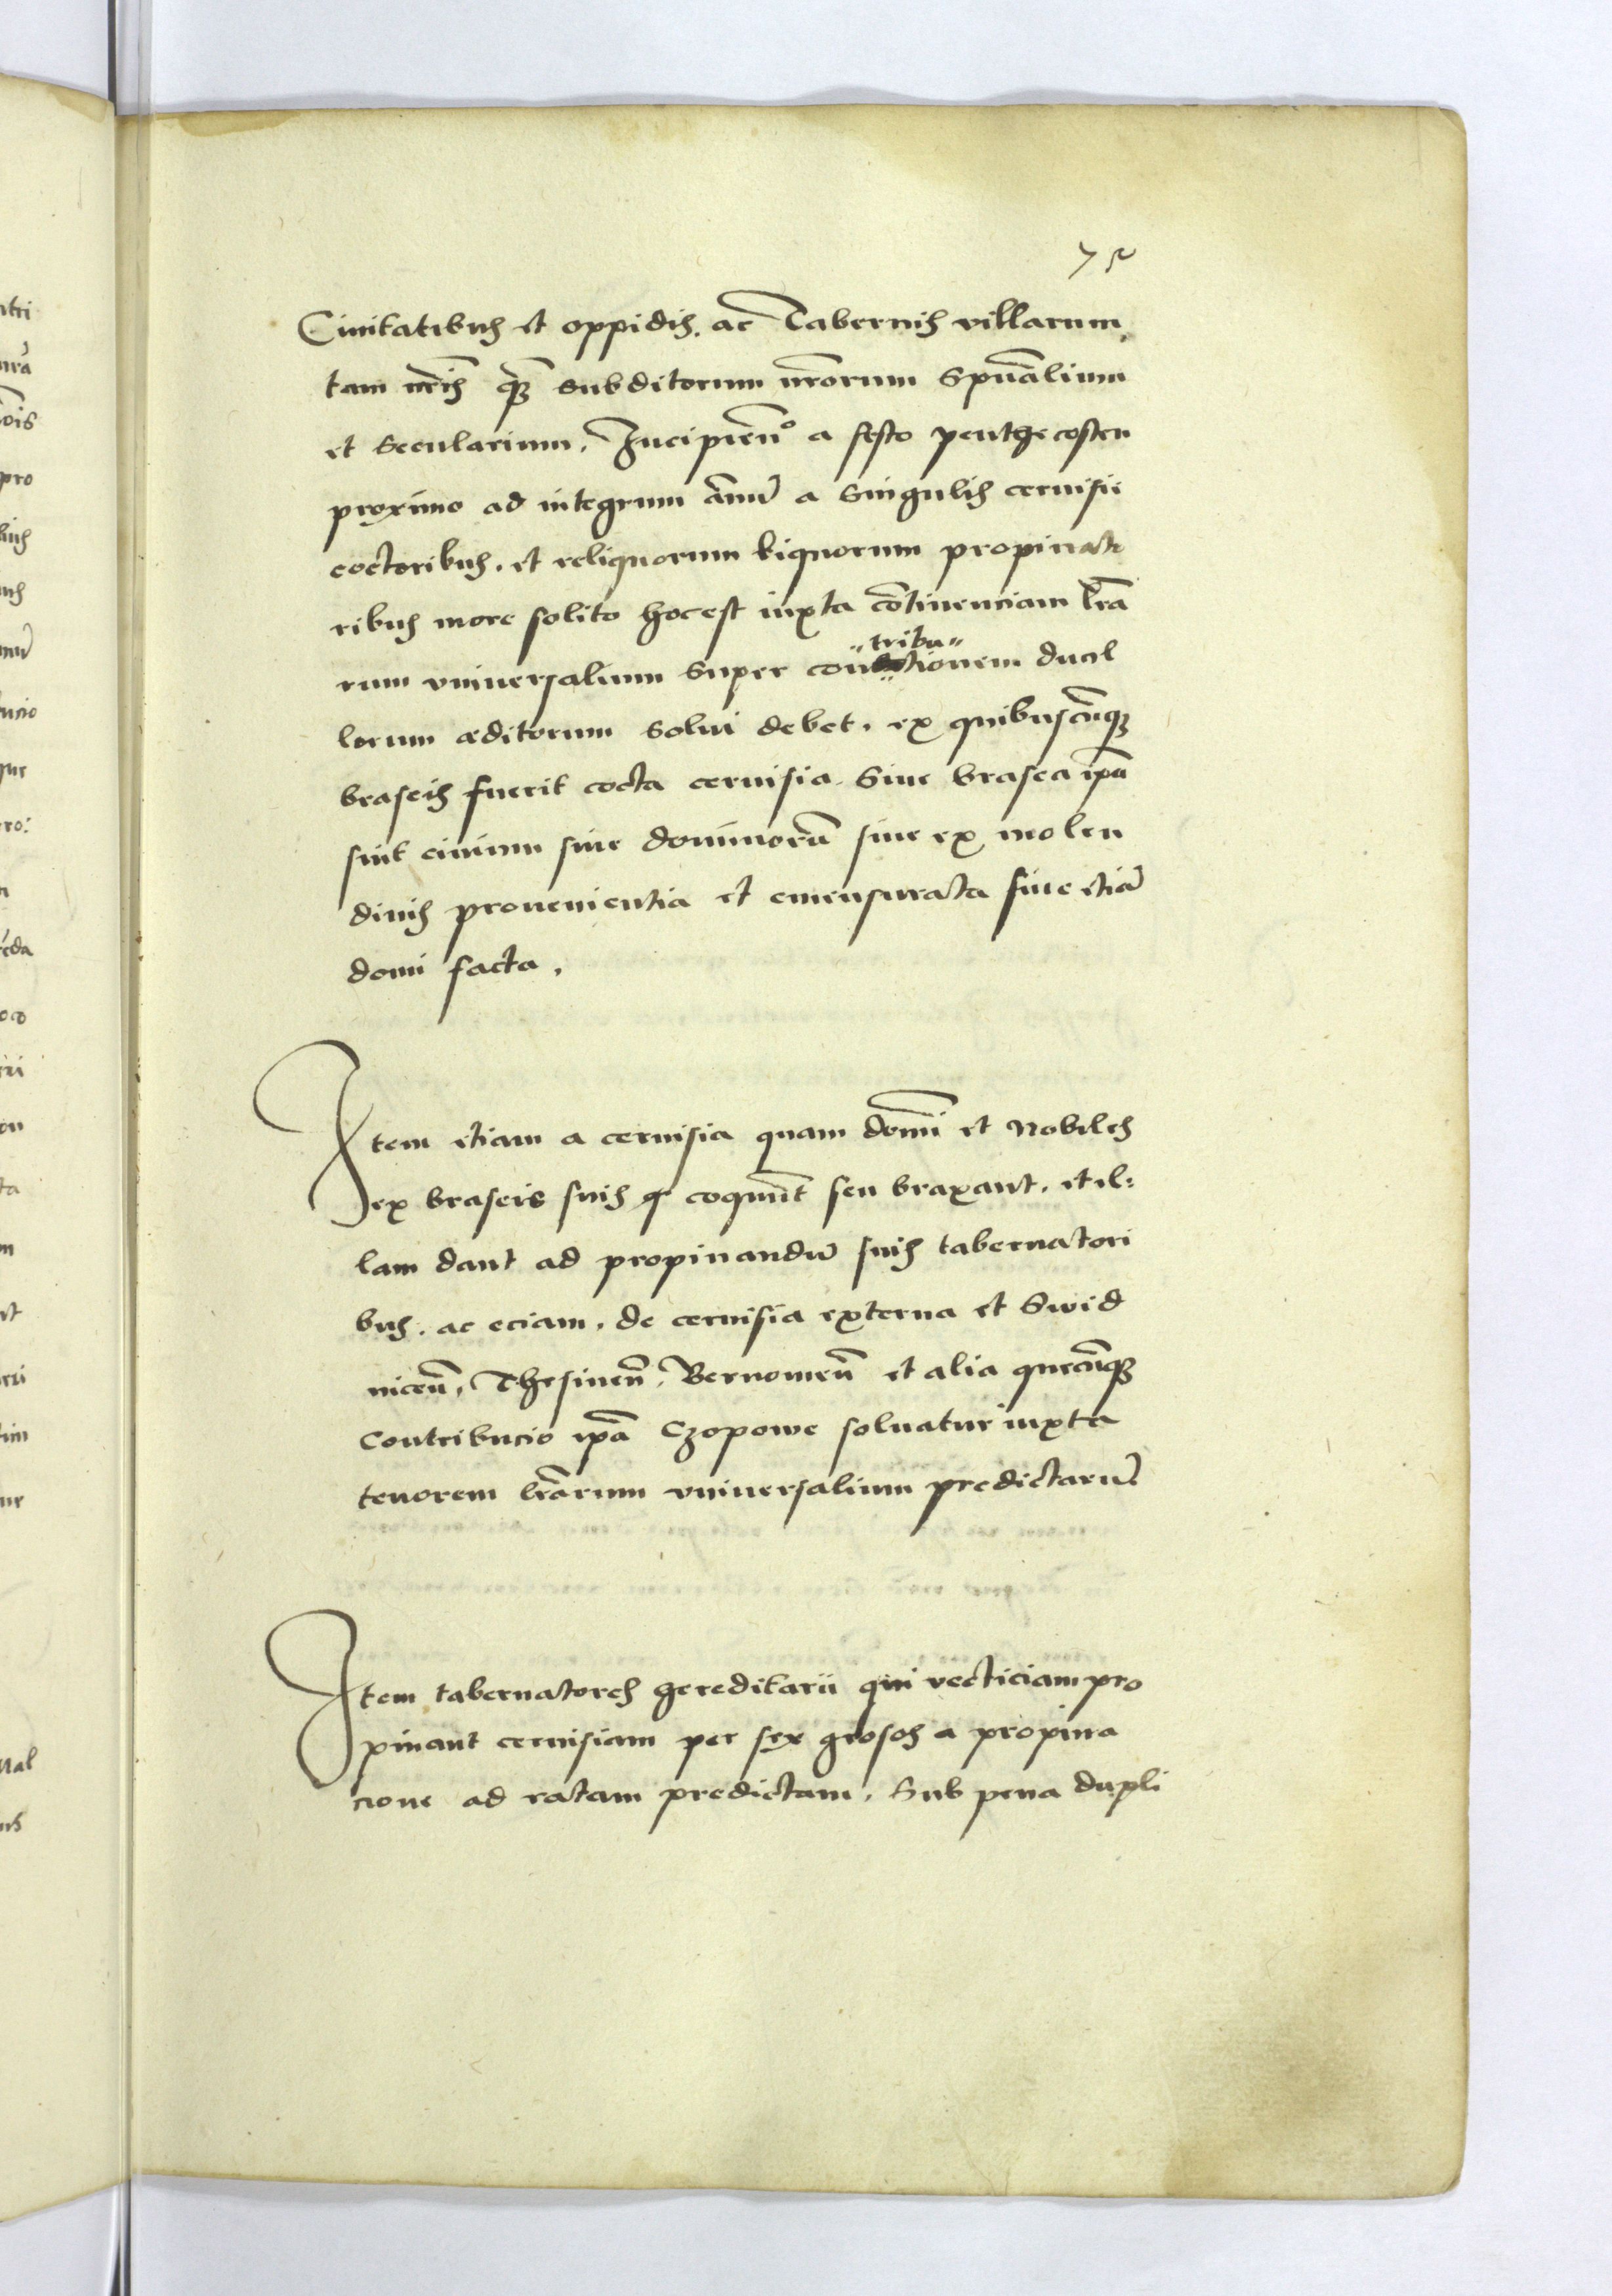 75
Ciuitatibus et oppidis. ac Tabernis villarum,
tam nr̄is q̄ꝫ subditorum nr̄orum Sp̄ualium
et Secularium. Incipien̄º a festo penthecosten
proximo ad integrum ānū a Singulis ceruisie
coctoribus. et reliquorum liquorum propinato
ribus more solito hoc est iuxta cōtinenciam lr̄a
tribu
rum vniuersalium Super con ctionem ducil
lorum æditorum Solui debet. ex quibuscūqꝫ
braseis fuerit cocta ceruisia. Siue brasea ip̄a
sint ciuium siue dominorū siue ex molen
dinis prouenientia et emensurata siue etiā
domi facta.
Item etiam a ceruisia quam domī et Nobiles
ex braseis suis coquūt seu braxant. et il:
lam dant ad propinandū suis tabernatori
bus. ac eciam. de ceruisia externa et Swid
nicen̄. Thesinen̄. Bernowien̄ et alia quecūqꝫ
Contribucio ip̄a Czopowe soluatur iuxta
tenorem lr̄arum vniuersalium predictarū
Item tabernatores hereditarii qui vecticiam pro
pinant ceruisiam per sex grosos a propina
cione ad ratam predictam. Sub pena dupli